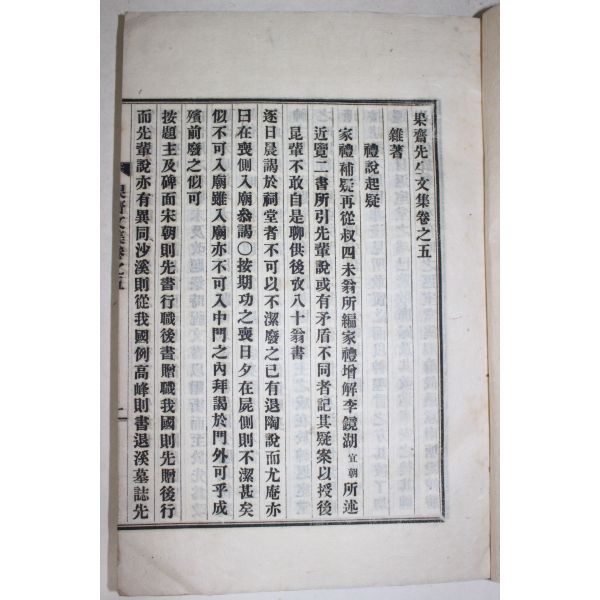 果齋先生文集卷之五
雜著
禮說起疑
家禮補疑再從叔四未翁所編家禮增解李鏡湖宜朝所述
近覽二書所引先輩說或有矛盾不同者記其疑案以授後
昆輩不敢自是聊供後攷八十翁書
逐日晨謁於祠堂者不可以不潔廢之已有退陶說而尤庵亦
曰在喪側入廟叅謁〇按期功之喪日夕在屍側則不潔甚矣
似不可入廟雖入廟亦不可入中門之內拜謁於門外可乎成
殯前廢之似可
按題主及碑面宋朝則先書行職後書贈職我國則先贈後行
而先輩說亦有異同沙溪則從我國例高峰則書退溪墓誌先
果齋文集卷之五
一